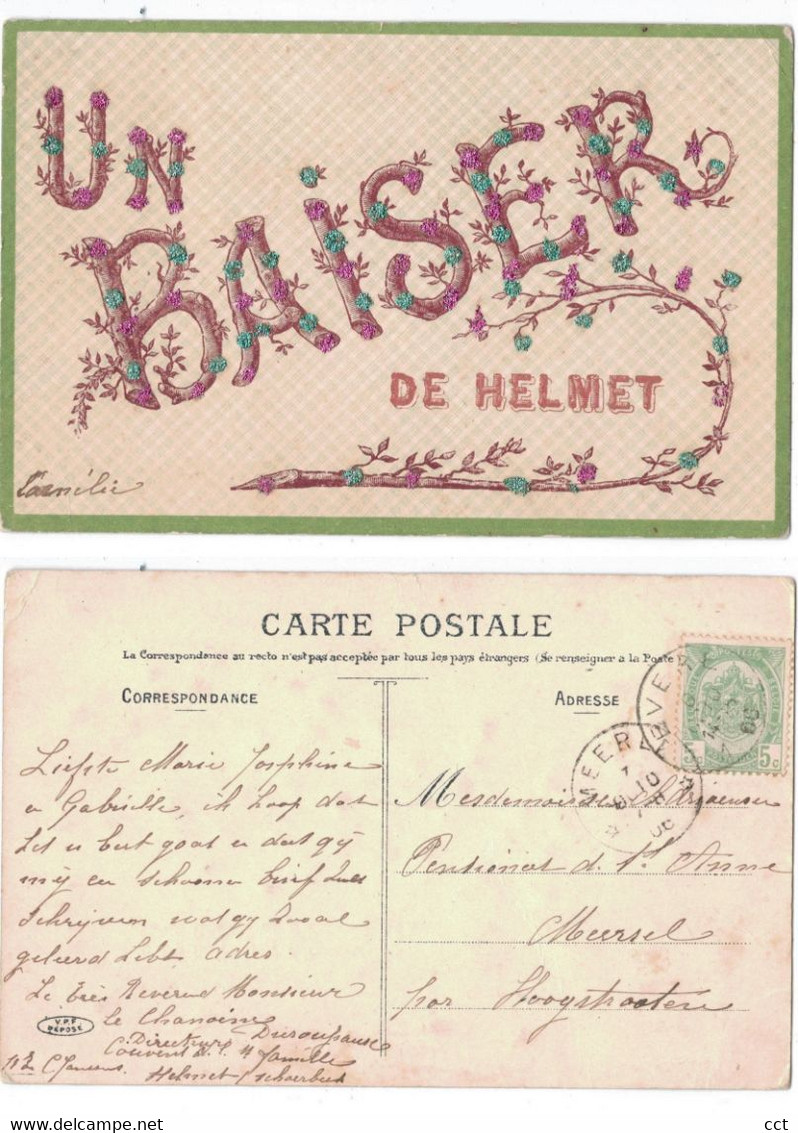 UN
BAISER
DE HELMET
CARTE POSTALE
La Correspondance au recto n'est pas acceptée par tous les pays étrangers (Se renseigner a la Poste
CORRESPONDANCE
ADRESSE
5c 5c
MEER
Liefste Marie Josephine
en Gabrielle, ik hoop dat
het u bert goat en dat gy
my en schoonen brief zult
schrijven wat gy zooal
geleerd hebt adres.
Le Très Reverend Monsieur
le Chanoine
Directeur
Couvent Famille
Helmet
V.P.F
DÉPOSÉ
Mesdemoiselles
Pensionat d. St Anne
Meersel
par Hoogstraeten
www.delcampe.net
cct